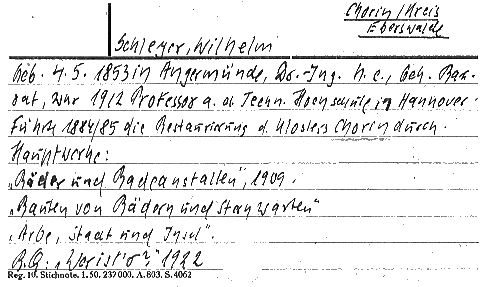 Chorin/Kreis
Eberswalde
Schleyer, Wilhelm
Geb. 4.5. 1853 in Angermünde, Dr.-Ing. h.c., Geh. Bau-
rat, war 1912 Professor a. d. Techn. Hochschule in Hannover.
Führte 1884/85 die Restaurierung d. Klosters Chorin durch.
Hauptwerke:
„Bäder und Badeanstalten", 1909.
„Bauten von Bädern und
„Arbe, Stadt und Insel".
B.Q.: „Wer ist's?" 1922
Reg. 10. Stichnote. 1. 50. 232 000. A. 803. S. 4062